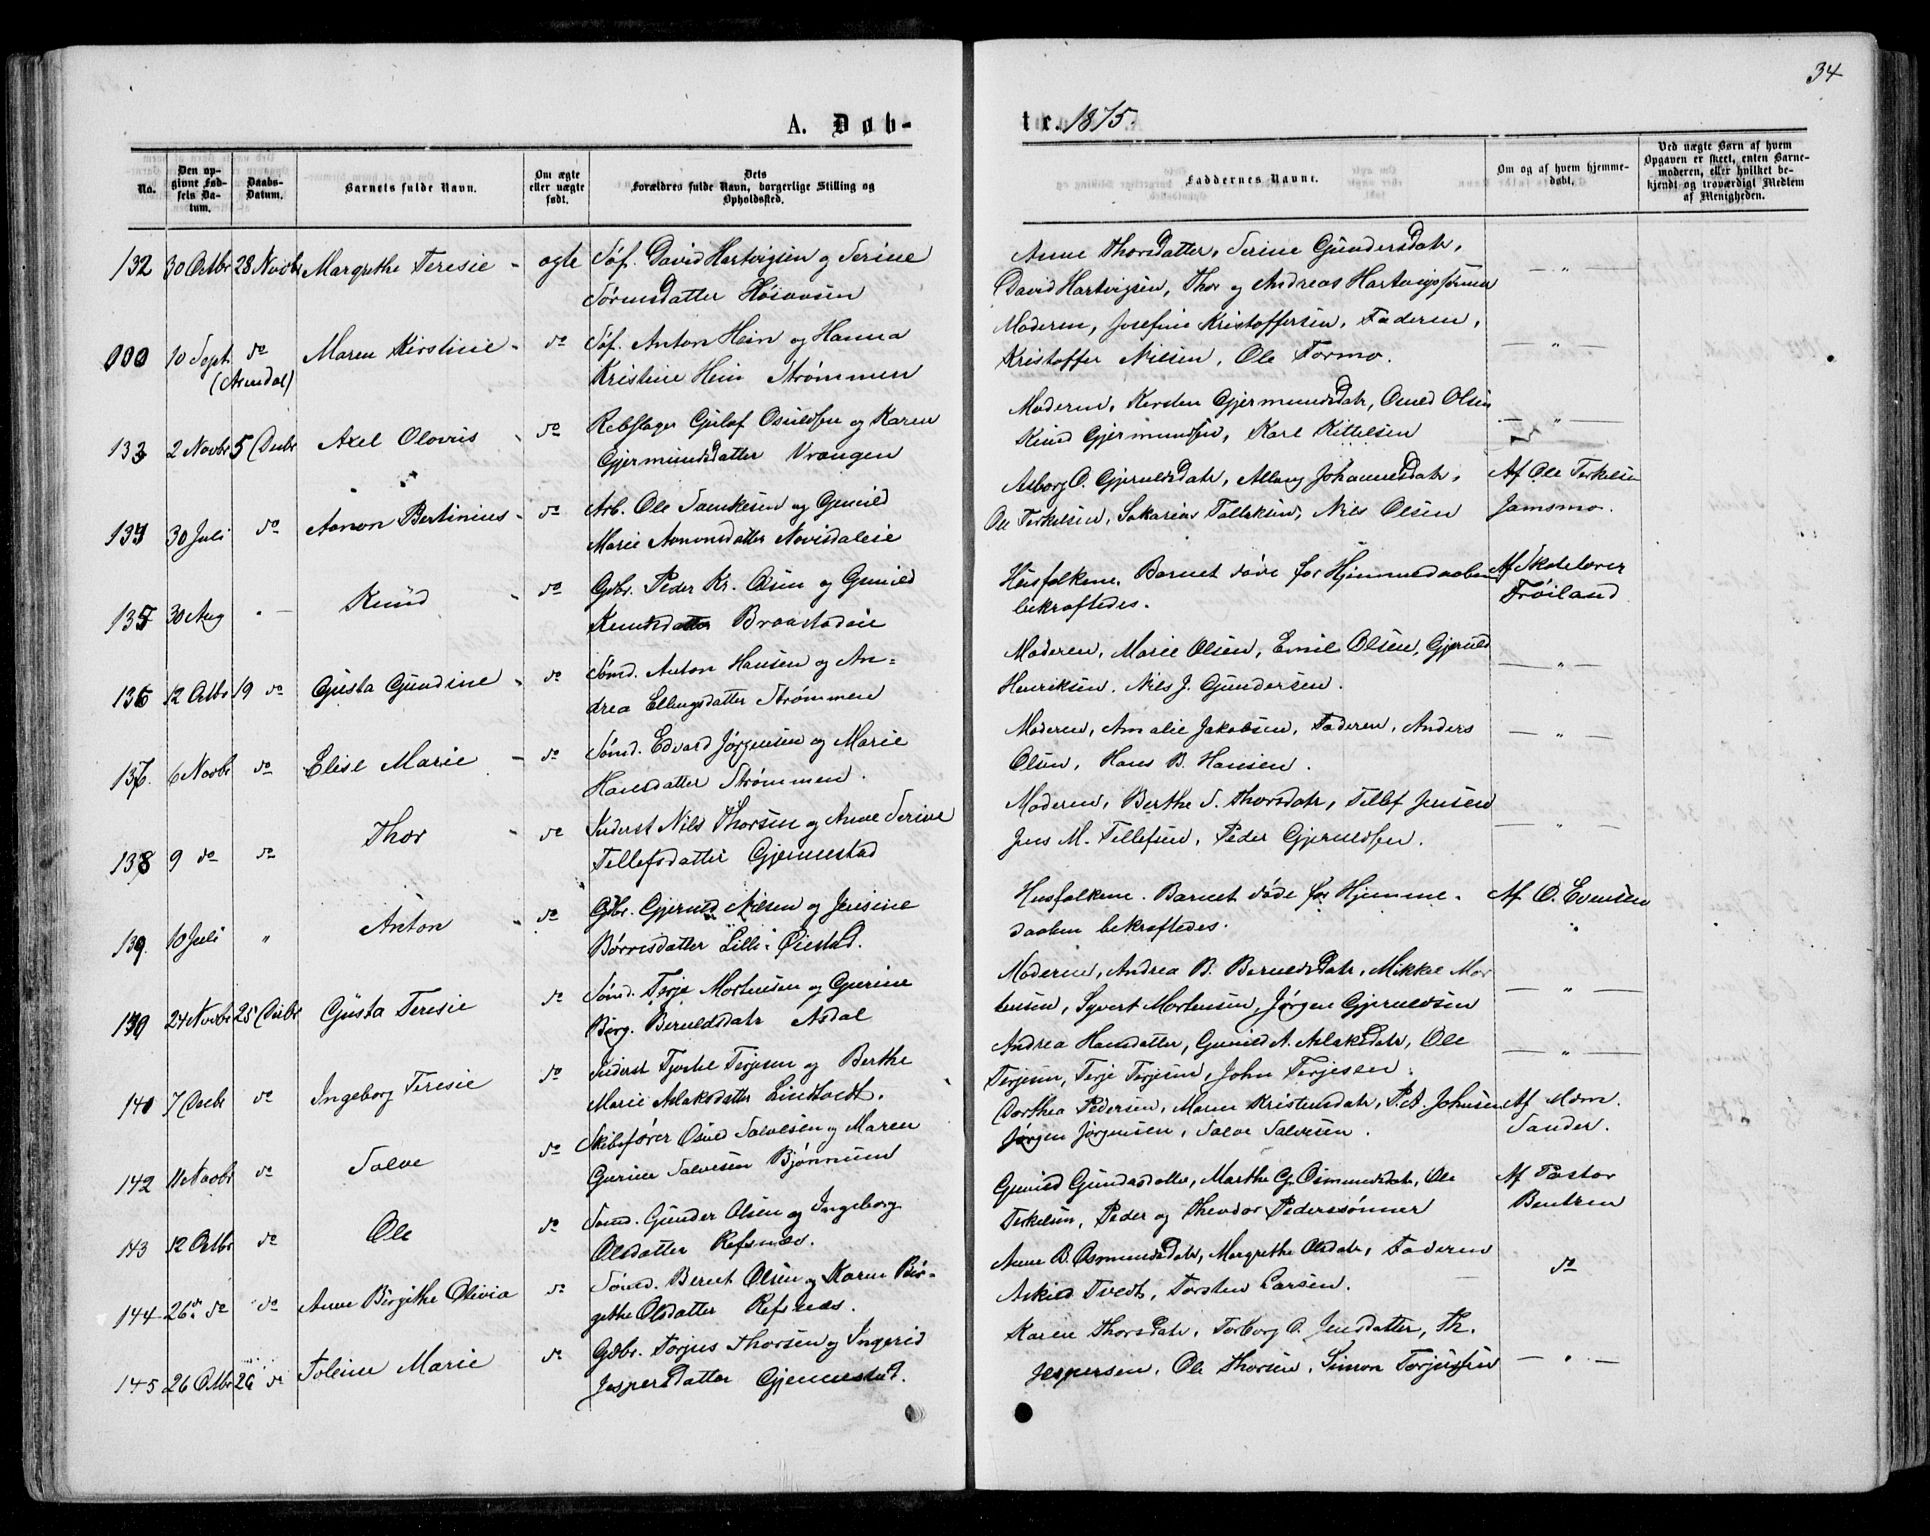 34
A. Døb-
te. 1875.
No.
Den op-
givne Fød-
sels Da-
tum.
Daabs-
Datum.
Barnets fulde Navn.
Om ægte
eller uægte
født.
Dets
Forældres fulde Navn, borgerlige Stilling og
Opholdssted.
Faddernes Navne.
Om og af hvem hjemme-
døbt.
Ved uægte Børn af hvem
Opgaven er skeet, enten Barne-
moderen, eller hvilket be-
kjendt og troværdigt Medlem
af Menigheden.
132 30 Octbr 28 Novbr Margrethe Teresie - ægte Søf. David Hartvigsen og Serine
Sørensdatter
Anne Thorsdatter, Serine Gundersdatr,
David Hartvigsen, Thor og Andreas Hartvigssønner
— " —
10 Sept. do Maren Kirstine - do Søf. Anton Hein og Hanna
(Arendal) Kristine Hein Strømmen
Moderen, Josefine Kristoffersen, Faderen,
Kristoffer Nielsen, Ole Tormo.
— " —
133 2 Novbr 5 Decbr Axel Olovius - do Rebslager Gjulof Osuldsen og Karen
Gjermundsdatter Vrangen
Moderen, Kirsten Gjermundsdatr, Osuld Olsen
Knud Gjermundsen, Karl Kittelsen
— " —
134 30 Juli do Aanon Bertinius - do Arb. Ole og Gunild
Marie Aanonsdatter
Asborg O. Gjeruldsdatr, Johannesdatr,
Ole Terkelsen, Sakarias Tallaksen, Nils Olsen
Af Ole Terkelsen
Jamsmo.
135 30 Aug " — Knud - do Gdbr. Peder Kr. Olsen og Gunild
Knudsdatter Braastadeie
Husfolkene. Barnet døde før Hjemmedaaben
bekræftedes.
Af Skolelærer
Frøiland
136 12 Octbr 19 do Gusta Gundine - do Sømd. Anton Hansen og An-
drea Ellingsdatter Strømmen
Moderen, Marie Olsen, Emil Olsen, Gjeruld
Henriksen, Nils J. Gundersen.
— " —
137. 6 Novbr do Elise Marie - do Sømd. Edvard Jørgensen og Marie
Hansdatter Strømmen.
Moderen, Amalie Jakobsen, Faderen, Anders
Olsen, Hans B. Hansen.
— " —
138 9 do do Thor - do Inderst Nils Thorsen og Anne Serine
Tellefsdatter Gjennestad
Moderen, Berthe S. Thorsdatr, Tellef Jensen
Jens M. Tellefsen, Peder Gjeruldsen.
— " —
139. 10 Juli " Anton - do Gdbr. Gjeruld Nilsen og Jensine
Børresdatter Lille-Øiestad.
Husfolkene. Barnet døde før Hjemme-
daaben bekræftedes.
Af O. Evensen
"
24 Novbr 25 Decbr Gusta Teresie do Sømd. Terje Mortensen og Gurine
Berg. Beruldsdatr Asdal
Moderen, Andrea B. Beruldsdatr, Mikkel Mor
tensen, Syvert Mortensen, Jørgen Gjeruldsen
— " —
140 7 Decbr do Ingeborg Teresie do Inderst Tjostel Terjesen og Berthe
Marie Aslaksdatter Lindtvedt.
Andrea Hansdatter, Gunild A. Aslaksdatr, Ole
Terjesen, Terje Terjesen, John Terjesen.
— " —
142 11 Novbr do Salve do Skibsfører Osuld Salvesen og Maren
Gurine Salvesen Bjønnum
Dorthea Pedersen, Maren Kristensdatr, P. A. Johnsen
Jørgen Jørgensen, Salve Salvesen.
Af Mdm.
Sander.
143 12 Octbr do Ole do Sømd. Gunder Olsen og Ingeborg
Olsdatter Refsnæs.
Gunild Gundersdatter, Marthe G. Osmundsdatr, Ole
Terkelsen, Peder og Theodor Pederssønner
Af Pastor
Bentzen
144 26 do do Anne Birgithe Olivia do Sømd. Bernt Olsen og Karen Bir-
githe Olsdatter Refsnæs.
Anne B. Osmundsdatr, Margrethe Olsdatr, Faderen
Askild Tvedt, Torsten Larsen.
do
145 26 Octbr 26 do Toline Marie do Gdbr. Torjus Thorsen og Ingerid
Jespersdatter Gjennestad.
Karen Thorsdatr, Torborg O. Jensdatter, Th.
Jespersen, Ole Thorsen, Simon Torjussen
— " —